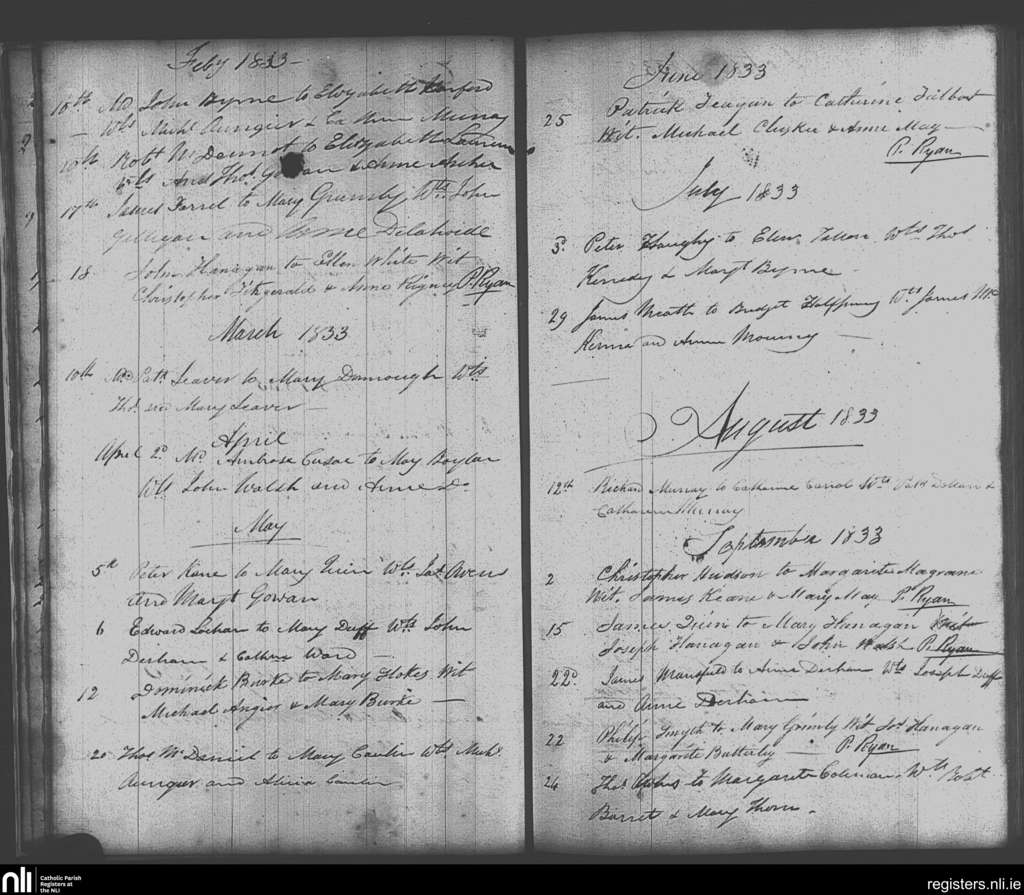 Feby 1833
10th Md John Byrne to Elizabeth
Wts Michl Aungier & Cathrn Murray
10th Robt McDermot to Elizabeth
Wts And Thos & Anne Archer
17th James Farrel to Mary Grumly Wts John
Gilligan and Anne Delahoide
18 John Hanagan to Ellen White Wit
Christopher Fitzgerald & Anne P. Ryan
March 1833
10th Md Patk Seaver to Mary Wts
Thos and Mary Seaver
April
April 2d Md Ambrose Cusac to May Boylan
Wts John Walsh and Anne Do
May
5th Peter Kane to Mary Quin Wts Jas Owens
and Margt Gowan
6 Edward to Mary Duff Wts John
Derham & Cathrn Ward
12 Dominick Burke to Mary Wit
Michael Angier & Mary Burke
20 Thos McDaniel to Mary Wts Michl
Aungier and
June 1833
25 Patrick Feagan to Catherine Talbot
Wit. Michael Cluskee & Anne May
P. Ryan
July 1833
3d Peter to Elen Wts Thos
Kennedy & Margt Byrne
29 James Meath to Bridget Halfpenny Wts James Mc
Kenna and Anne
August 1833
12th Richard Murray to Catharine Carrol Wts &
Catharine Murray
September 1833
2 Christopher Hudson to Margarite Magrane
Wit. James Keane & Mary May P. Ryan
15 James Quin to Mary Hanagan Wit
Joseph Hanagan & John Walsh P. Ryan
22d James Mansfield to Anne Derham Wts Joseph Duff
and Anne Derham
22 Philip Smyth to Mary Grimly Wit Jos Hanagan
& Margarite Butterly P. Ryan
24 Thos to Margarite Coleman Wts Robt
Barret & Mary Thorn
nli Catholic Parish
Registers at
the NLI
registers.nli.ie